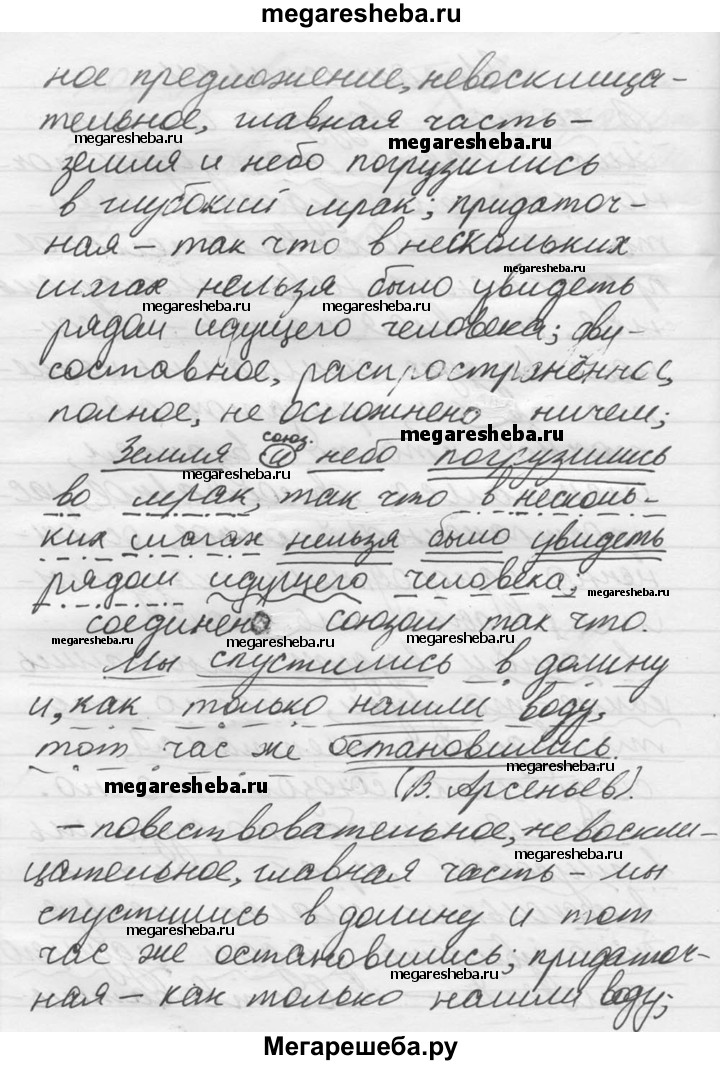 megaresheba.ru
ное предложение, невосклица-
тельное, главная часть –
megaresheba.ru
megaresheba.ru
земля и небо погрузились
в глубокий мрак; придаточ-
ная – так что в нескольких
megaresheba.ru
шагах нельзя было увидеть
megaresheba.ru megaresheba.ru
рядом идущего человека; дву-
megaresheba.ru
составное, распространённое,
полное, не осложнено ничем;
megaresheba.ru
союз.
Земля и небо погрузились
megaresheba.ru
во мрак, так что в несколь-
megaresheba.ru
ких шагах нельзя было увидеть
рядом идущего человека;
megaresheba.ru
соединено союзом так что.
megaresheba.ru megaresheba.ru megaresheba.ru
Мы спустились в долину
и, как только нашли воду,
тот час же остановились.
megaresheba.ru
megaresheba.ru
(В. Арсеньев).
– повествовательное, невоскли-
megaresheba.ru
цательное, главная часть – мы
спустились в долину и тот
megaresheba.ru
час же остановились; придаточ-
megaresheba.ru
ная – как только нашли воду;
Мегарешеба.ру